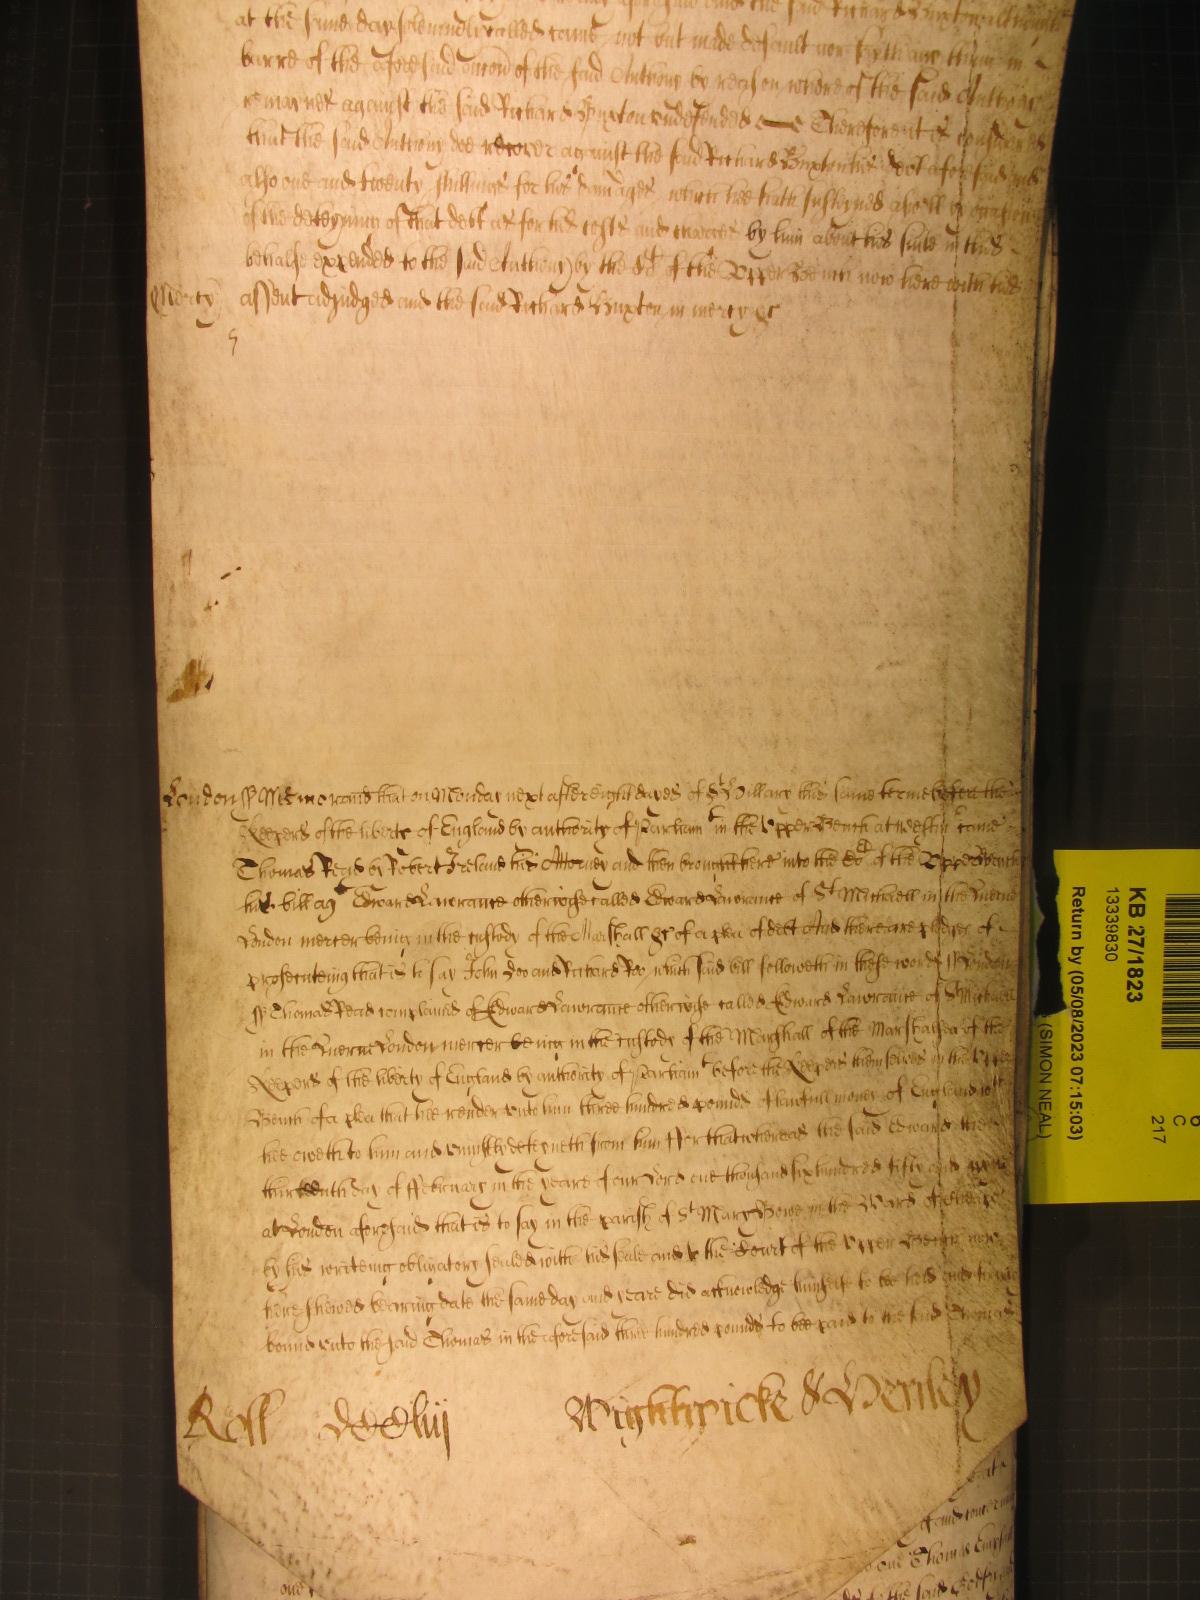 at the same day solemnly called came not but made default nor hath any thing in
barre of the aforesaid accion of the said Anthony by reason whereof the said Anthony
remaynes against the said Richard Buxton undefended Therefore it is considered
that the said Anthony doe recover against the said Richard Buxton his debt aforesaid and
also one and twenty shillings for his damages which hee hath susteyned aswell by occasion
of the deteyning of that debt as for his costs and charges by him about his suite in this
behalfe expended to the said Anthony by the Co:rt of the Upper Bench now here with his
Mercy assent adjudged and the said Richard Buxton in mercy &c
London ss Memorand that on Monday next after eight dayes of St Hillary this same terme before the
Keepers of the liberty of England by authority of Parliamt in the Upper Bench at Westm came
Thomas Read by Robert Ireland his Attorney and then brought here into the Cort of the Upper Bench
his bill agt Edward Lawrance otherwise called Edward Lawrance of St Michaell in the Querne
London mercer being in the custody of the Marshall &c of a plea of debt And there are pledges of
prosecuteing that is to say John Doo and Richard Roo which said bill followeth in these words ss London
ss Thomas Read complaines of Edward Lawrance otherwise called Edward Lawrance of St Michaell
in the Querne London mercer being in the custody of the Marshall of the Marshalsea of the
Keepers of the liberty of England by authority of Parliamt before the Keepers themselves in the Upper
Bench of a plea that hee render unto him three hundred pounds of lawfull money of England wch
hee oweth to him and unjustly deteyneth from him For that whereas the said Edward the
thirteenth day of February in the yeare of our Lord one thousand six hundred fifty and
at London aforesaid that is to say in the parish of St Mary Bowe in the Ward of Cheape
by his writeing obligatory sealed with his seale and to the Court of the Upper Bench now
here shewed beareing date the same day and yeare did acknowledge himselfe to be held and firmely
bound unto the said Thomas in the aforesaid three hundred pounds to bee paid to the said Thomas
Roll
Wightwicke & Henley
KB 27/1823
13339830
Return by (05/08/2023 07:15:03)
(SIMON NEAL)
6
C
217